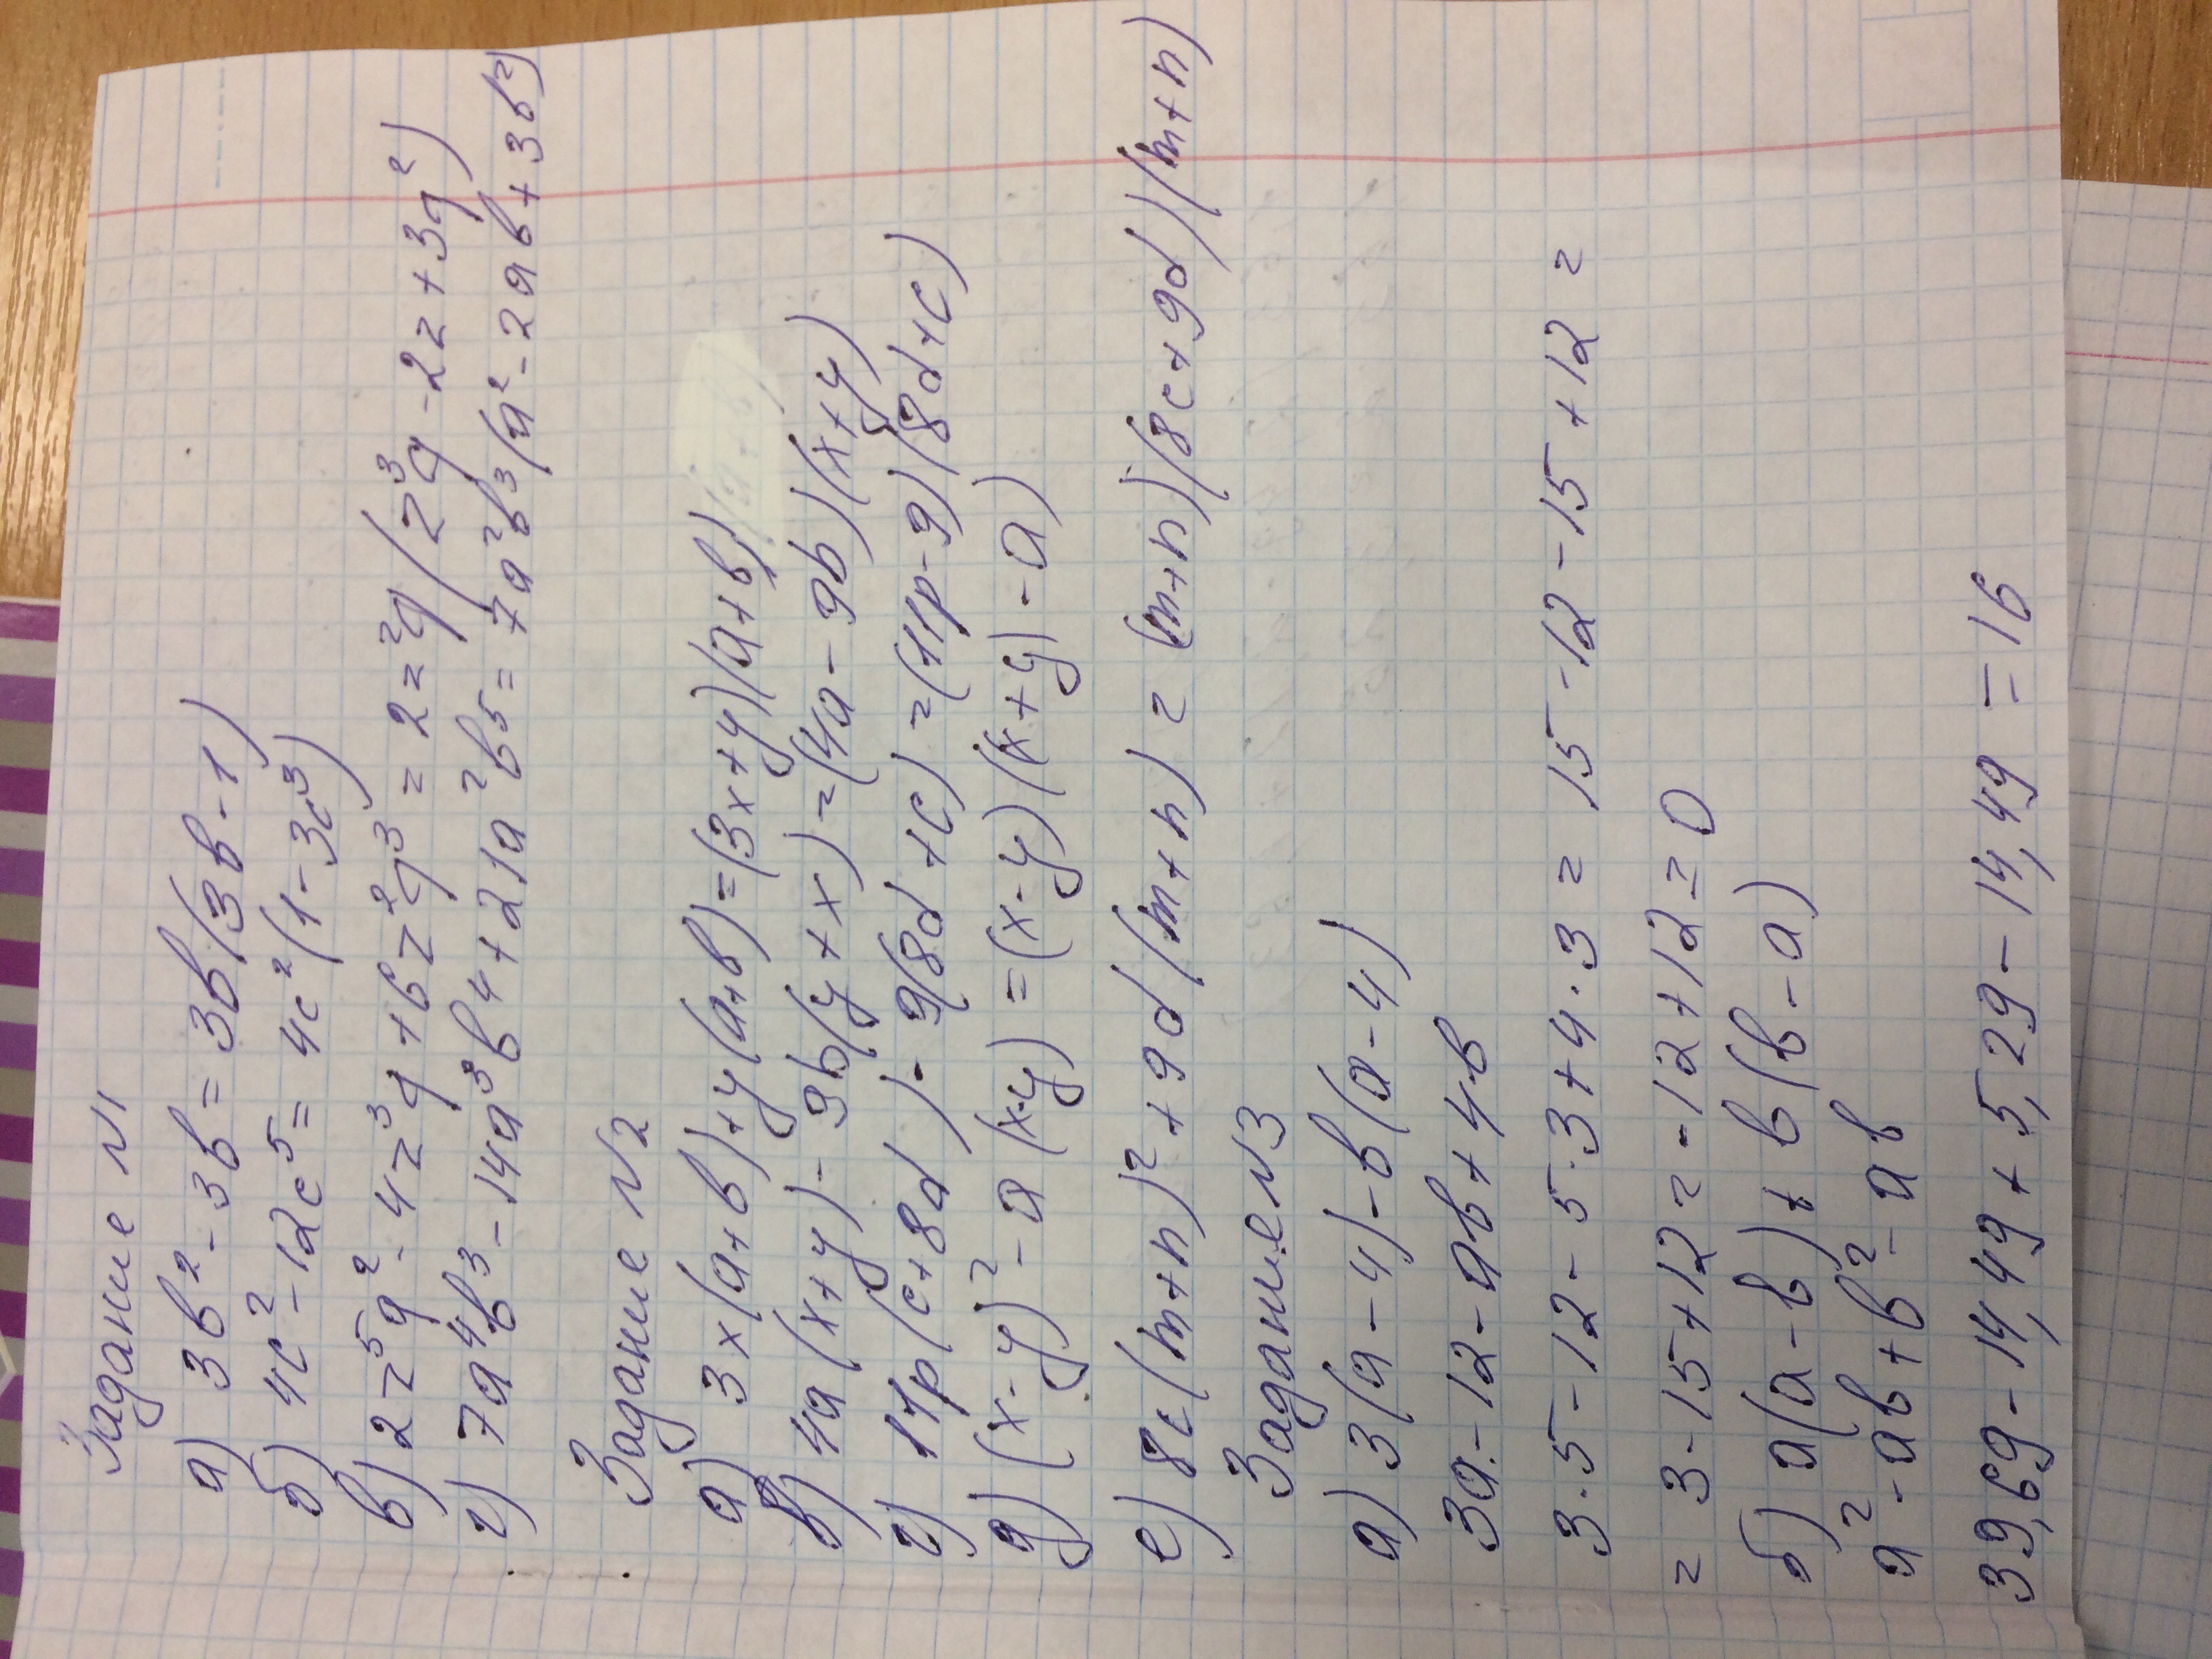 Задание №1
а) 3b² - 3b = 3b(3b - 1)
б) 4c² - 12c⁵ = 4c²(1 - 3c³)
в) 2z⁵q² - 4z³q + 6z²q³ = 2z²q(z³q - 2z + 3q²)
г) 7a⁴b³ - 14a³b⁴ + 21a²b⁵ = 7a²b³(a² - 2ab + 3b²)
Задание №2
а) 3x(a+b) + y(a+b) = (3x+y)(a+b)
в) 4a(x+y) - 9b(y+x) = (4a - 9b)(x+y)
г) 11p(c+8d) - 9(8d+c) = (11p - 9)(8d+c)
д) (x-y)² - a(x-y) = (x-y)(x+y) - a)
е) 8c(m+n)² + 9d(m+n) = (m+n)(8c+9d)(m+n)
Задание №3
а) 3(a-4) - b(a-4)
3a - 12 - ab + 4b
3·5 - 12 - 5·3 + 4·3 = 15 - 12 - 15 + 12 =
= 3 - 15 + 12 = -12 + 12 = 0
б) a(a-b) + b(b-a)
a² - ab + b² - ab
39,69 - 14,49 + 5,29 - 14,49 = 16